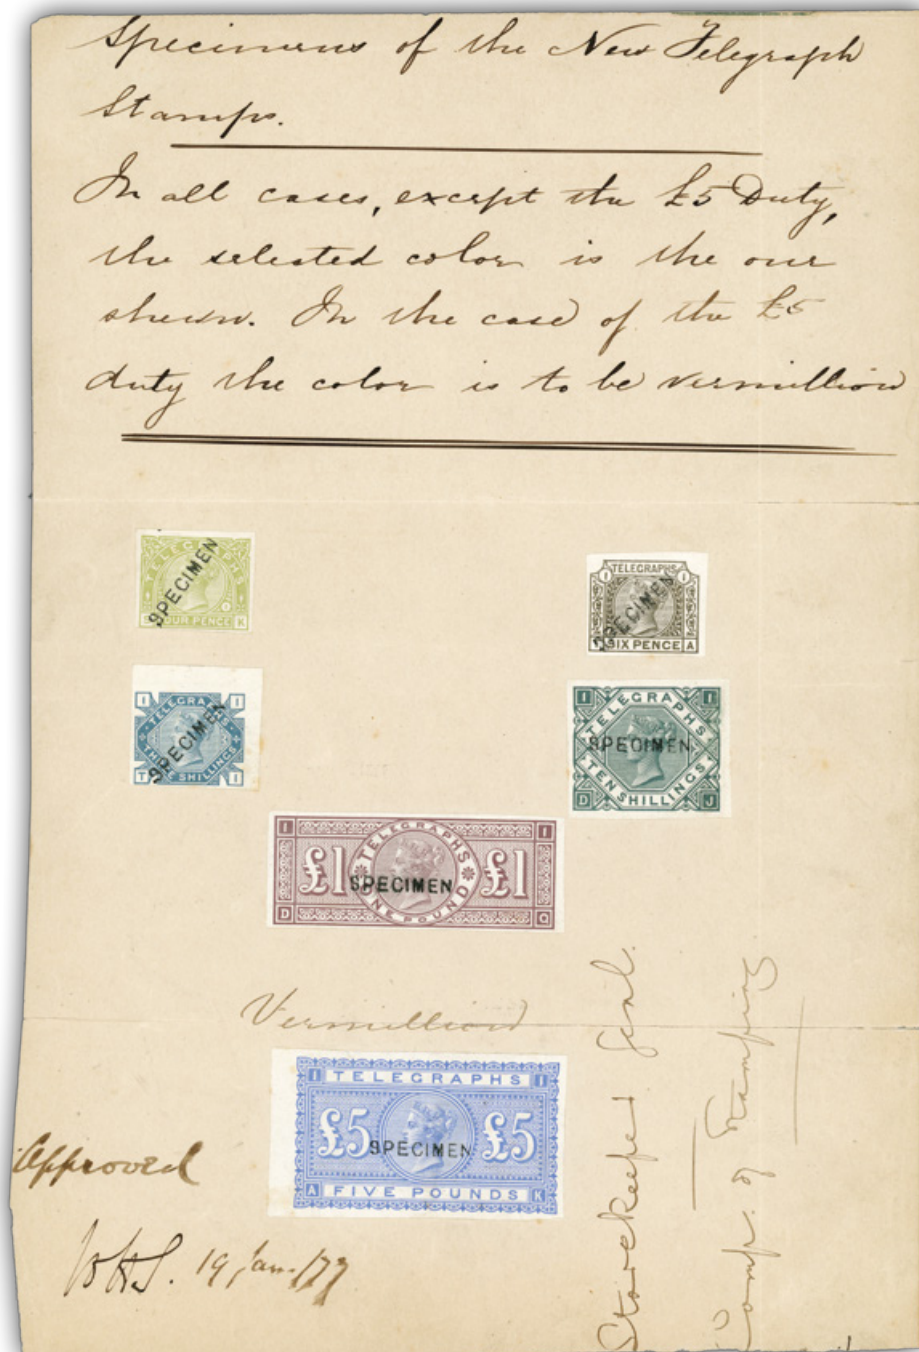 Specimens of the New Telegraph
Stamps.
In all cases, except the £5 Duty,
the selected color is the one
shewn. In the case of the £5
duty the color is to be vermillion
TELEGRAPHS
SPECIMEN
FOUR PENCE K
1 TELEGRAPHS 1
SPECIMEN
SIX PENCE A
1 1
TELEGRAPHS
SPECIMEN
THREE SHILLINGS
T I
1 1
TELEGRAPHS
SPECIMEN
TEN SHILLINGS
D J
1 TELEGRAPHS 1
£1 SPECIMEN £1
D ONE POUND Q
Vermillion
1 TELEGRAPHS 1
£5 SPECIMEN £5
A FIVE POUNDS K
Approved
19 Jan./77
Storekeeper Genl.
Comp. of Stamping